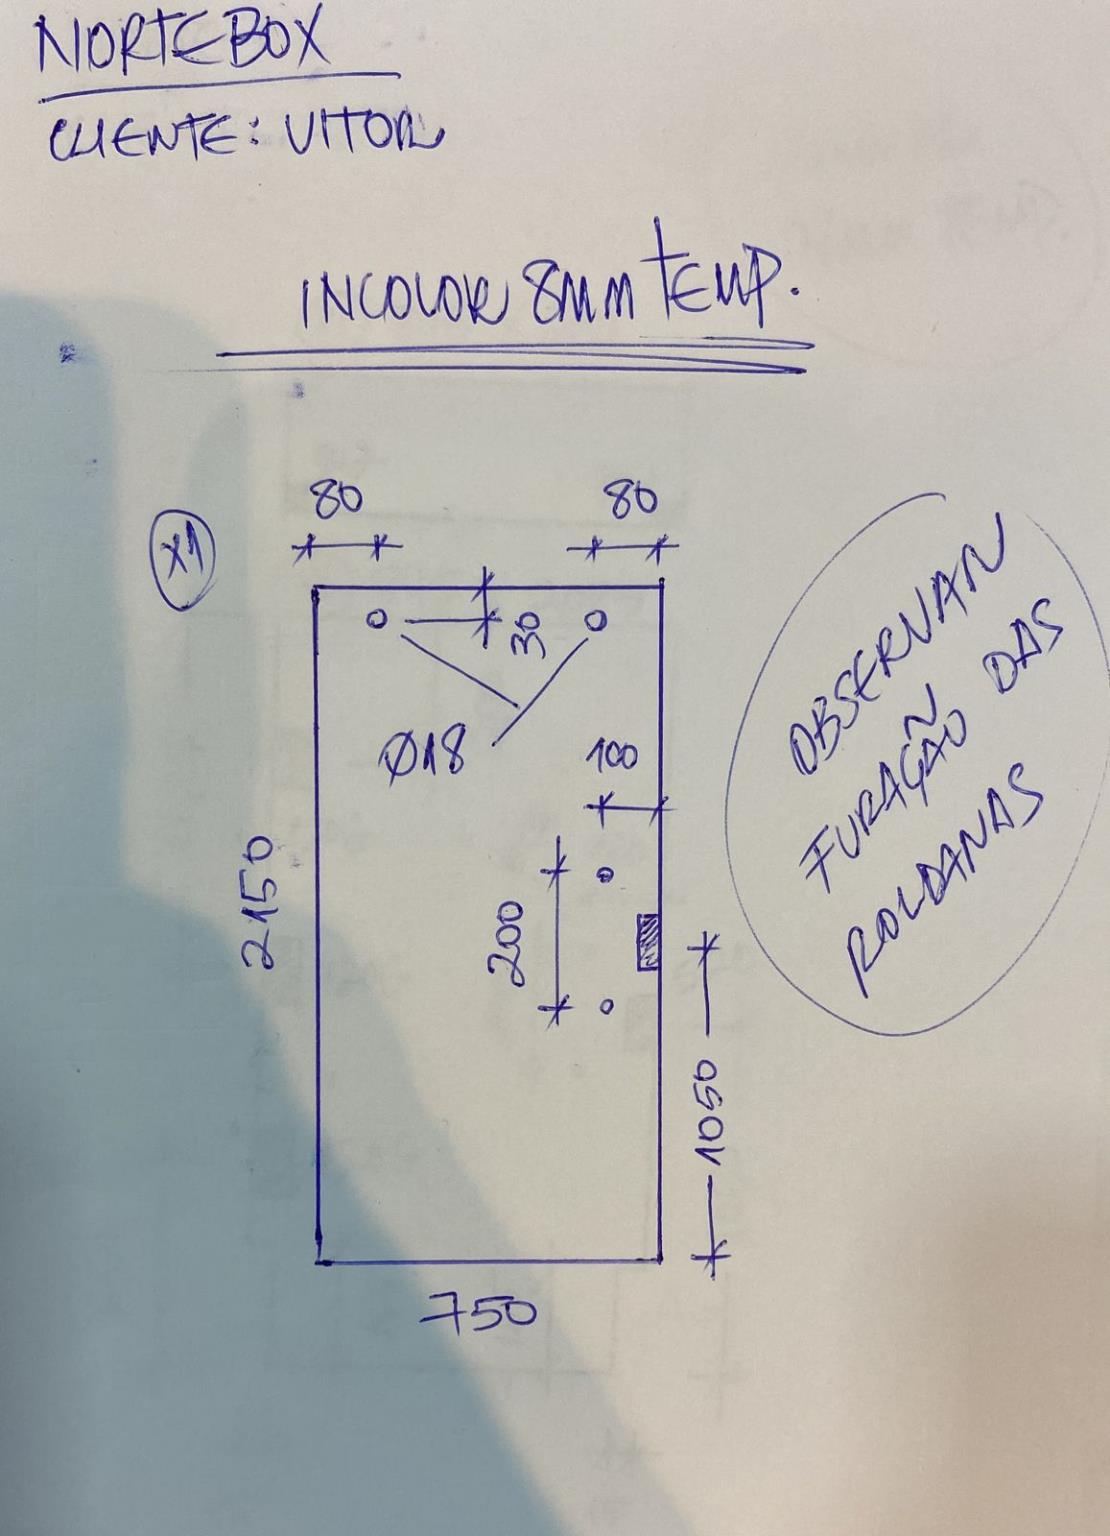 NORTEBOX
CLIENTE: VITOR
INCOLOR 8MM TEMP.
X1
80
80
30
Ø18
100
2150
200
1050
750
OBSERVAR
FURAÇÃO DAS
ROLDANAS